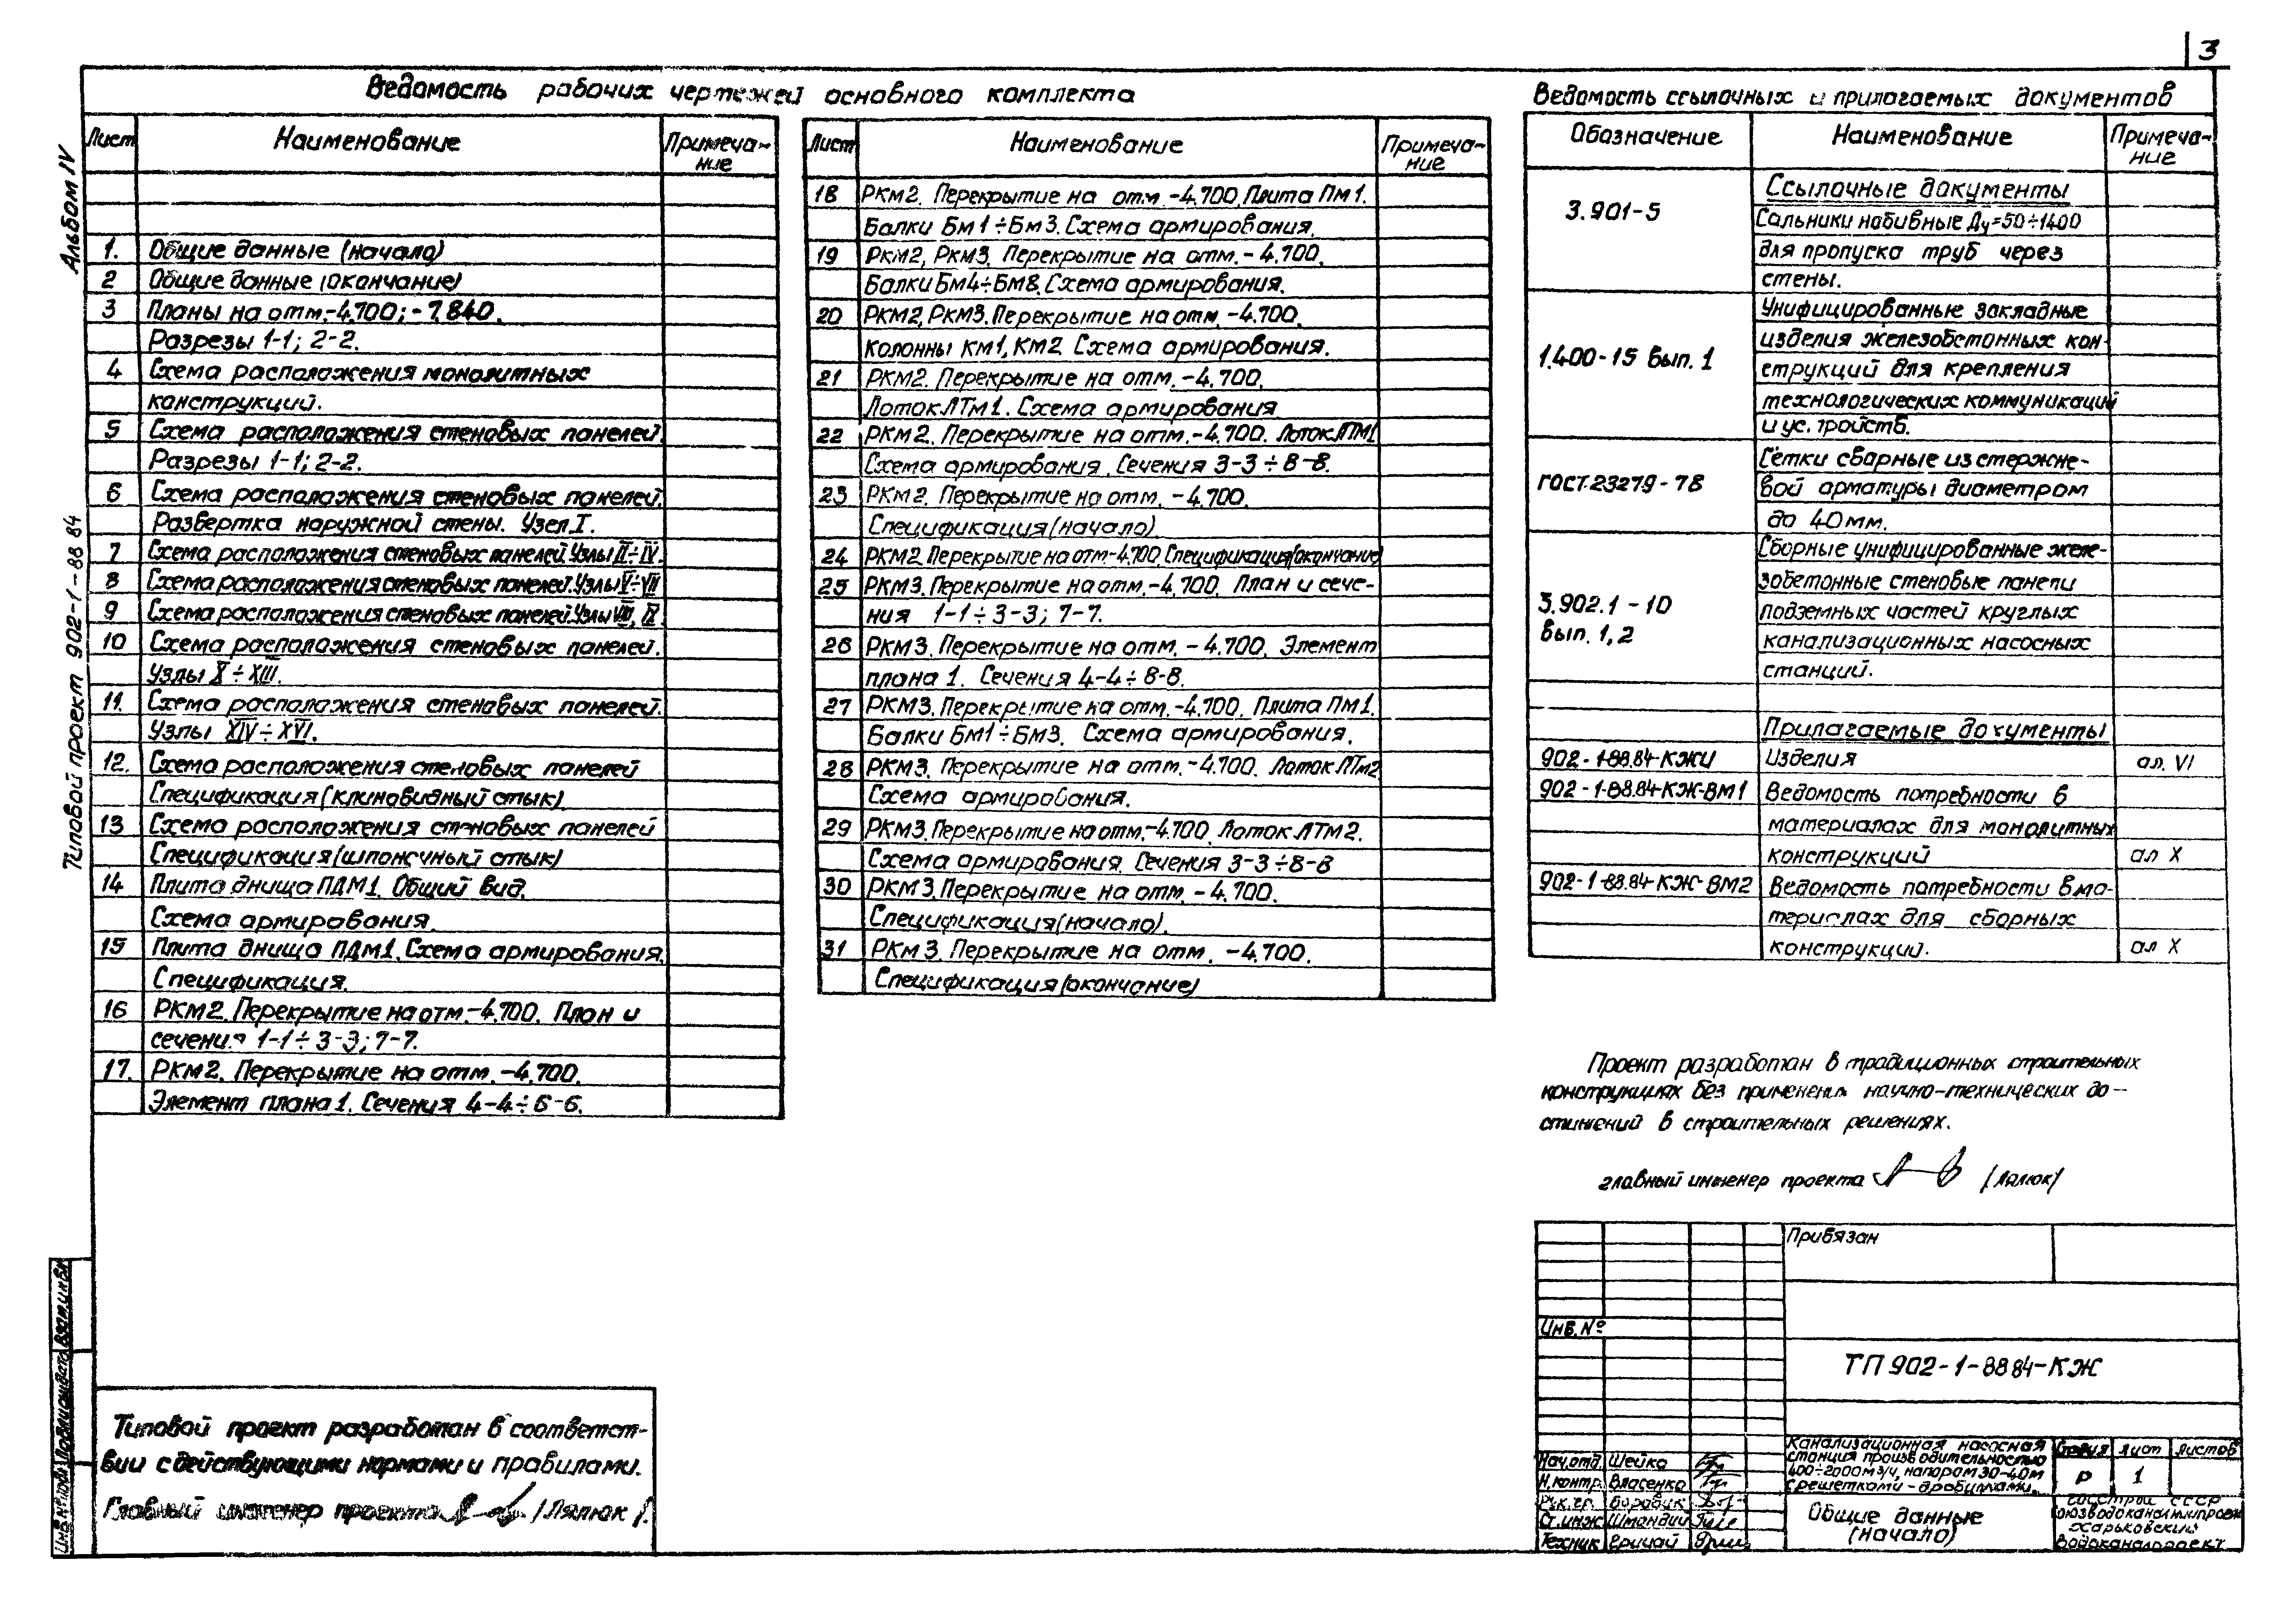 3
Альбом IV
Типовой проект 902-1-88 84
Ведомость рабочих чертежей основного комплекта
Лист Наименование Примеча-
ние
1. Общие данные (начало)
2 Общие данные (окончание)
3 Планы на отм.-4.700; -7.840.
Разрезы 1-1; 2-2.
4 Схема расположения монолитных
конструкций.
5 Схема расположения стеновых панелей.
Разрезы 1-1; 2-2.
6 Схема расположения стеновых панелей.
Развертка наружной стены. Узел I.
7 Схема расположения стеновых панелей. Узлы II÷IV.
8 Схема расположения стеновых панелей. Узлы V÷VII
9 Схема расположения стеновых панелей. Узлы VIII, IX.
10 Схема расположения стеновых панелей.
Узлы X÷XIII.
11. Схема расположения стеновых панелей.
Узлы XIV÷XVI.
12. Схема расположения стеновых панелей
Спецификация (клиновидный стык)
13 Схема расположения стеновых панелей
Спецификация (шпоночный стык)
14 Плита днища ПДМ1. Общий вид.
Схема армирования.
15 Плита днища ПДм1. Схема армирования.
Спецификация.
16 РКм2. Перекрытие на отм.-4.700. План и
сечения 1-1÷3-3; 7-7.
17. РКм2. Перекрытие на отм. -4.700.
Элемент плана 1. Сечения 4-4÷6-6.
Лист Наименование Примеча-
ние
18 РКм2. Перекрытие на отм. -4.700. Плита Пм1.
Балки Бм1÷Бм3. Схема армирования.
19 РКм2, РКм3. Перекрытие на отм. -4.700.
Балки Бм4÷Бм8. Схема армирования.
20 РКм2, РКм3. Перекрытие на отм. -4.700.
колонны Км1, Км2 Схема армирования.
21 РКм2. Перекрытие на отм. -4.700.
Лоток ЛТм1. Схема армирования
22 РКм2. Перекрытие на отм.-4.700. Лоток ЛТМ1
Схема армирования. Сечения 3-3÷8-8.
23 РКм2. Перекрытие на отм. -4.700.
Спецификация (начало).
24 РКм2 Перекрытие на отм-4.700. Спецификация (окончание)
25 РКм3. Перекрытие на отм.-4.700. План и сече-
ния 1-1÷3-3; 7-7.
26 РКм3. Перекрытие на отм. -4.700. Элемент
плана 1. Сечения 4-4÷8-8.
27 РКМ3. Перекрытие на отм.-4.700. Плита Пм1.
Балки Бм1÷Бм3. Схема армирования.
28 РКМ3. Перекрытие на отм.-4.700. Лоток ЛТм2
Схема армирования.
29 РКМ3. Перекрытие на отм.-4.700. Лоток ЛТм2.
Схема армирования. Сечения 3-3÷8-8
30 РКм3. Перекрытие на отм. -4.700.
Спецификация (начало).
31 РКм3. Перекрытие на отм. -4.700.
Спецификация (окончание)
Ведомость ссылочных и прилагаемых документов
Обозначение Наименование Примеча-
ние
Ссылочные документы
3.901-5 Сальники набивные Ду=50÷1400
для пропуска труб через
стены.
Унифицированные закладные
изделия железобетонных кон-
1.400-15 вып. 1 струкций для крепления
технологических коммуникаций
и устройств.
Сетки сварные из стержне-
ГОСТ.23279-78 вой арматуры диаметром
до 40мм.
Сборные унифицированные желе-
зобетонные стеновые панели
3.902.1-10 подземных частей круглых
вып. 1,2 канализационных насосных
станций.
Прилагаемые документы
902-1-88.84-КЖИ Изделия ал. VI
902-1-88.84-КЖ-ВМ1 Ведомость потребности в
материалах для монолитных
конструкций ал X
902-1-88.84-КЖ-ВМ2 Ведомость потребности в ма-
териалах для сборных
конструкций. ал X
Проект разработан в традиционных строительных
конструкциях без применения научно-технических до-
стижений в строительных решениях.
главный инженер проекта /Лялюк/
Типовой проект разработан в соответст-
вии с действующими нормами и правилами.
Главный инженер проекта /Лялюк/.
Инв.№ подл. Подпись и дата Взам.инв.№
Привязан
Инв. №
ТП 902-1-88 84-КЖ
Нач.отд. Шейко
Н.контр. Власенко
Рук.гр. Боровик
Ст.инж Шмандий
Техник Грицай
Канализационная насосная
станция производительностью
400÷2000м3/ч, напором 30-40м
с решетками-дробилками.
Стадия Лист Листов
Р 1
Общие данные
(начало)
Госстрой СССР
Союзводоканалниипроект
Харьковский
Водоканалпроект